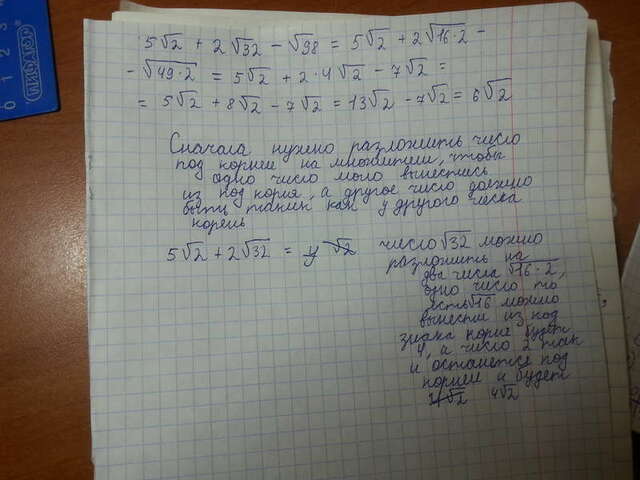 5√2 + 2√32 - √98 = 5√2 + 2√16·2 -
- √49·2 = 5√2 + 2·4√2 - 7√2 =
= 5√2 + 8√2 - 7√2 = 13√2 - 7√2 = 6√2
Сначала нужно разложить число
под корнем на множители, чтобы
одно число могло вынестись
из под корня, а другое число должно
быть таким как у другого числа
корень
5√2 + 2√32 = 4 √2
число √32 можно
разложить на
два числа √16·2,
одно число то
есть √16 можно
вынести из под
знака корня будет
4, а число 2 так
и останется под
корнем и будет
4√2
0 1 2 3
ПИФАГОР